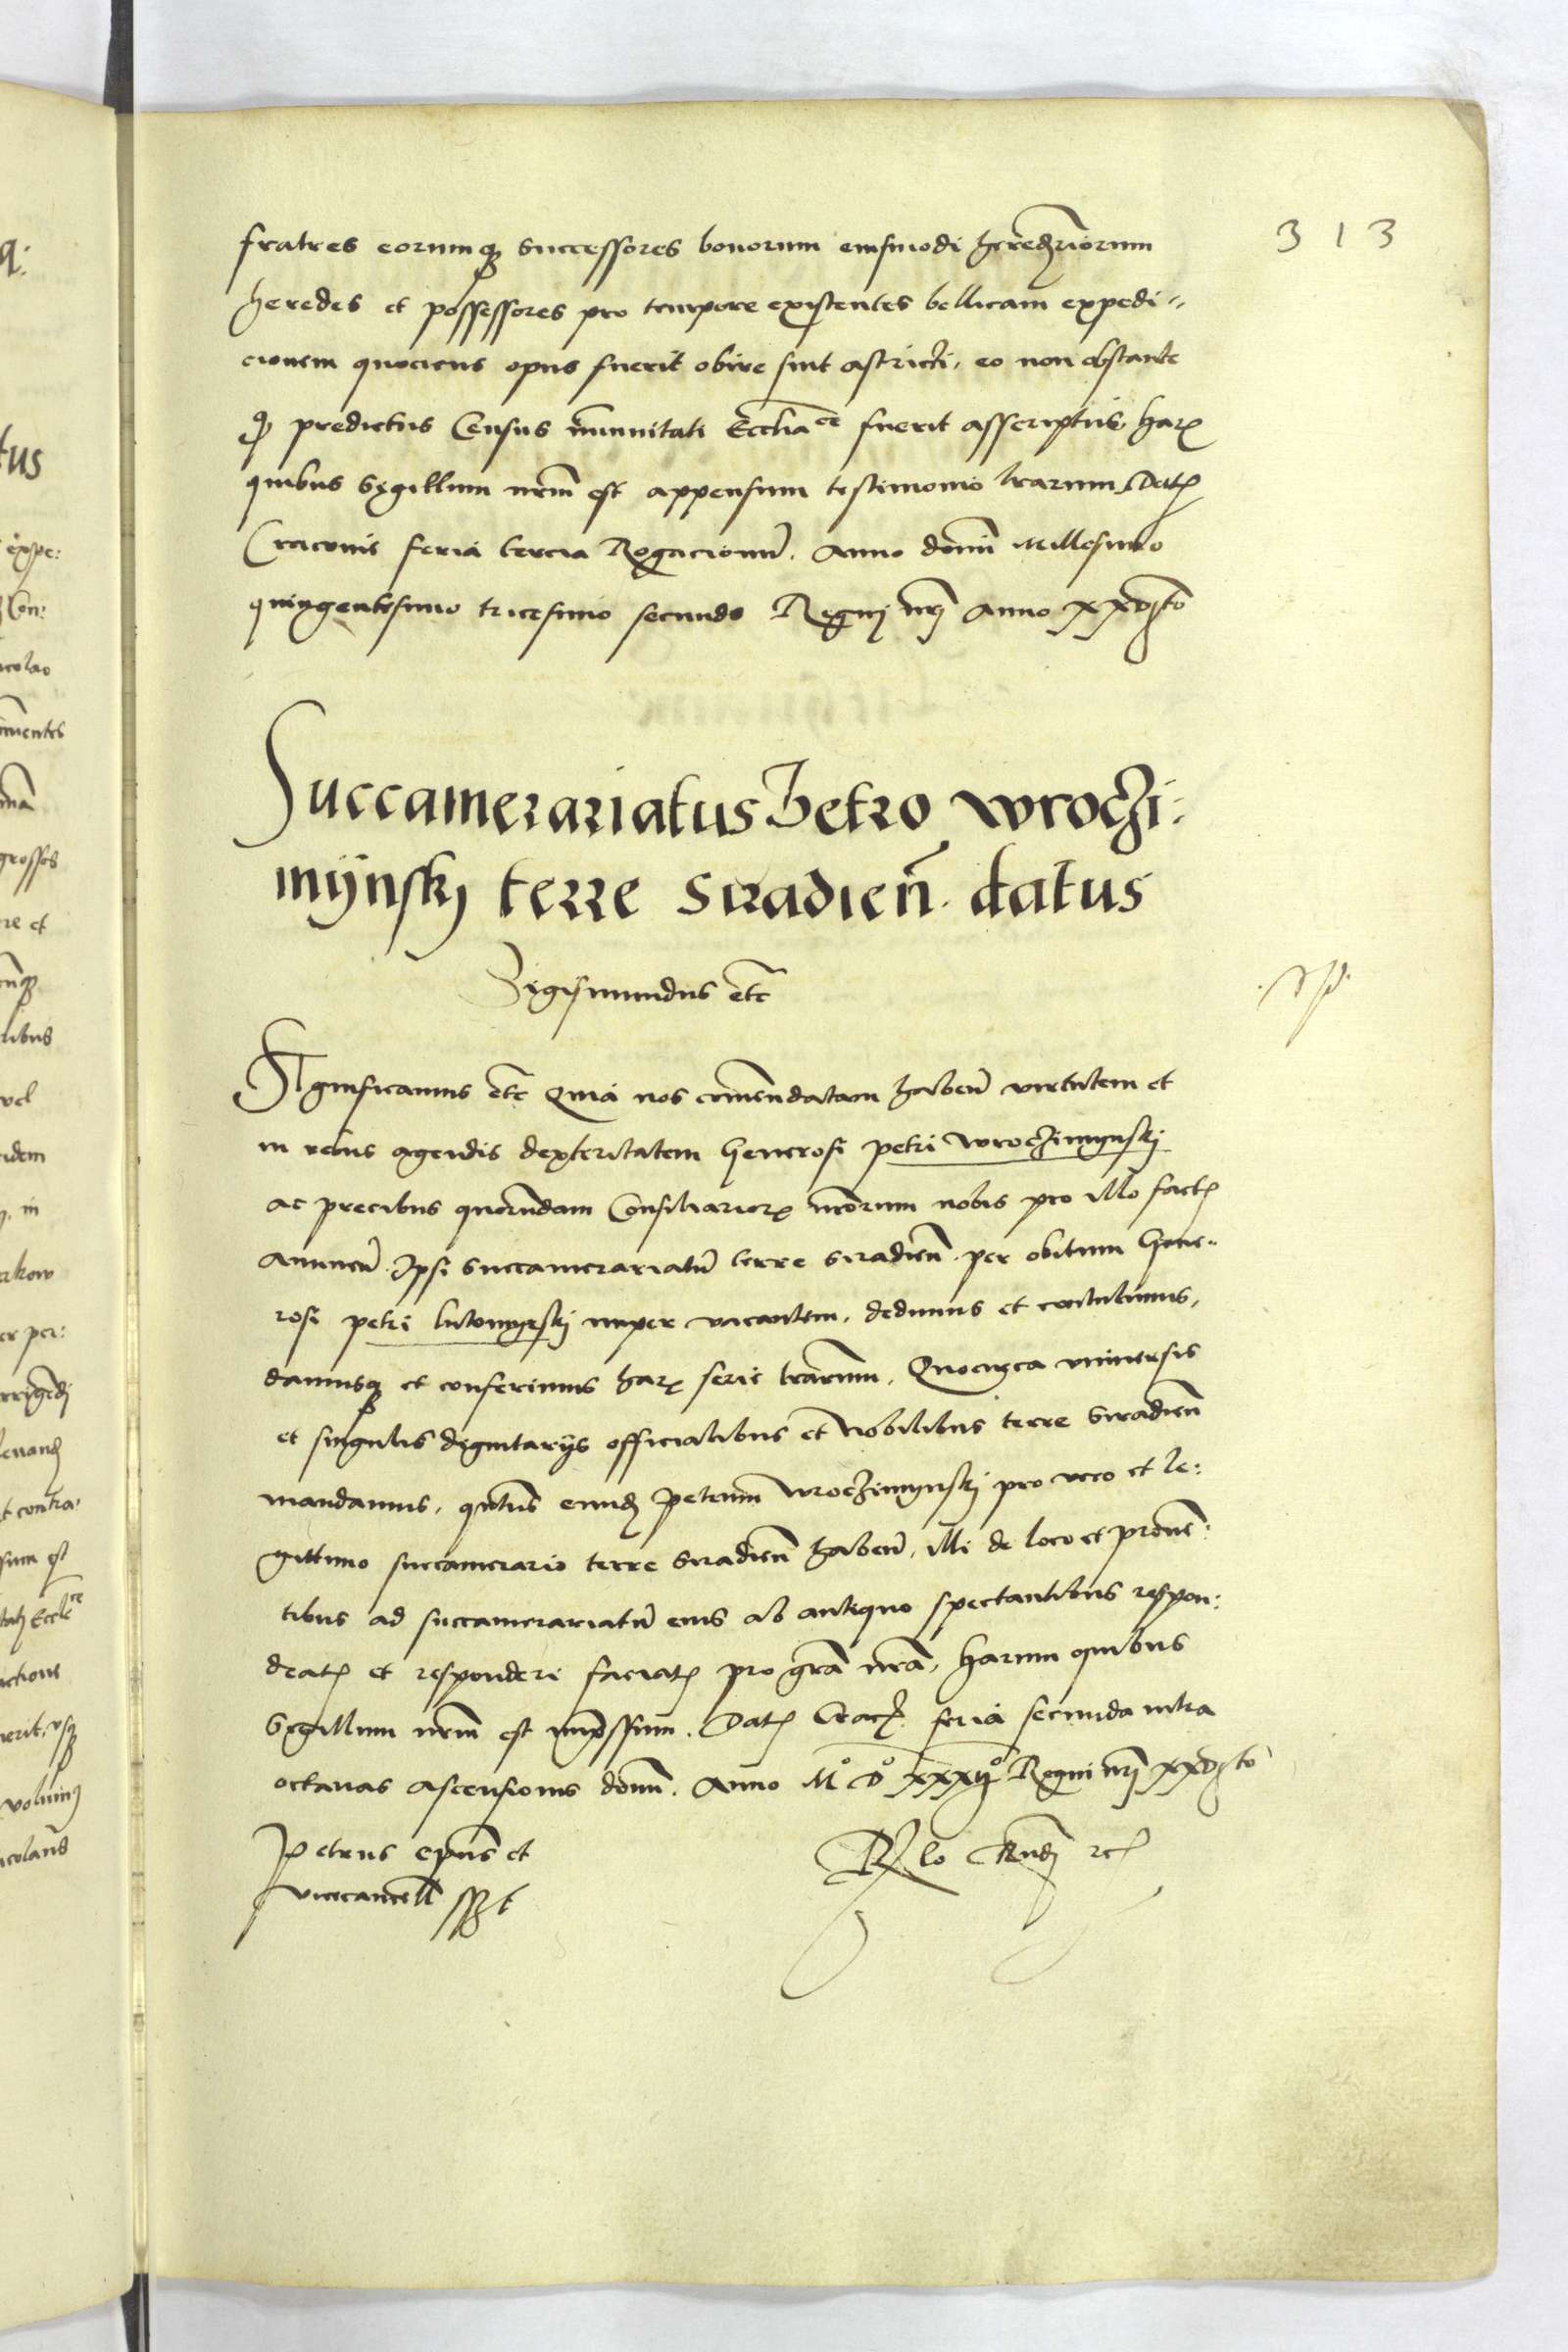 313
fratres eorumq successores bonorum eiusmodi hereditariorum
heredes et possessores pro tempore existentes bellicam expedi-
cionem quociens opus fuerit obire sint astricti, eo non obstante
q predictus Census immunitati Ecclia ce fuerit asscriptus, harz
quibus Sigillum nrm est appensum testimonio lrarum, Datz
Cracovie feria tercia Rogacionu. Anno domini Millesimo
quingentesimo tricesimo secundo Regni nri Anno xxvjto
Succamerariatus Petro wroczi:
mÿnskj terre Siradien. datus
Sigismundus etc
Significamus etc Quia nos comendatam haben virtutem et
in rebus agendis dexteritatem Generosi petri wroczimynskj
ac precibus quorundam Consiliariorz nrorum nobis pro illo factz
annuen. Ipsi Succamerariatu terre Siradien. per obitum Gene-
rosi petri lutomyrskj nuper vacantem, dedimus et contulimus,
damusq et conferimus harz serie lrarum, Quocirca universis
et singulis dignitarijs officialibus et Nobilibus terre Siradien
mandamus, qutus eund Petrum wroczimynskj pro vero et le:
gittimo succamerario terre Siradien haben, illi de loco et proven:
tibus ad succamerariatu eius ab antiquo spectantibus respon:
deatz et responderi faciatz pro gra nra, harum quibus
Sigillum nrm est impssum. Datz Cracz. feria secunda intra
octavas ascensionis domi. Anno Mo Do xxxijo Regni nri xxvjto
Petrus epus et
vicecancell sszt
Rlo